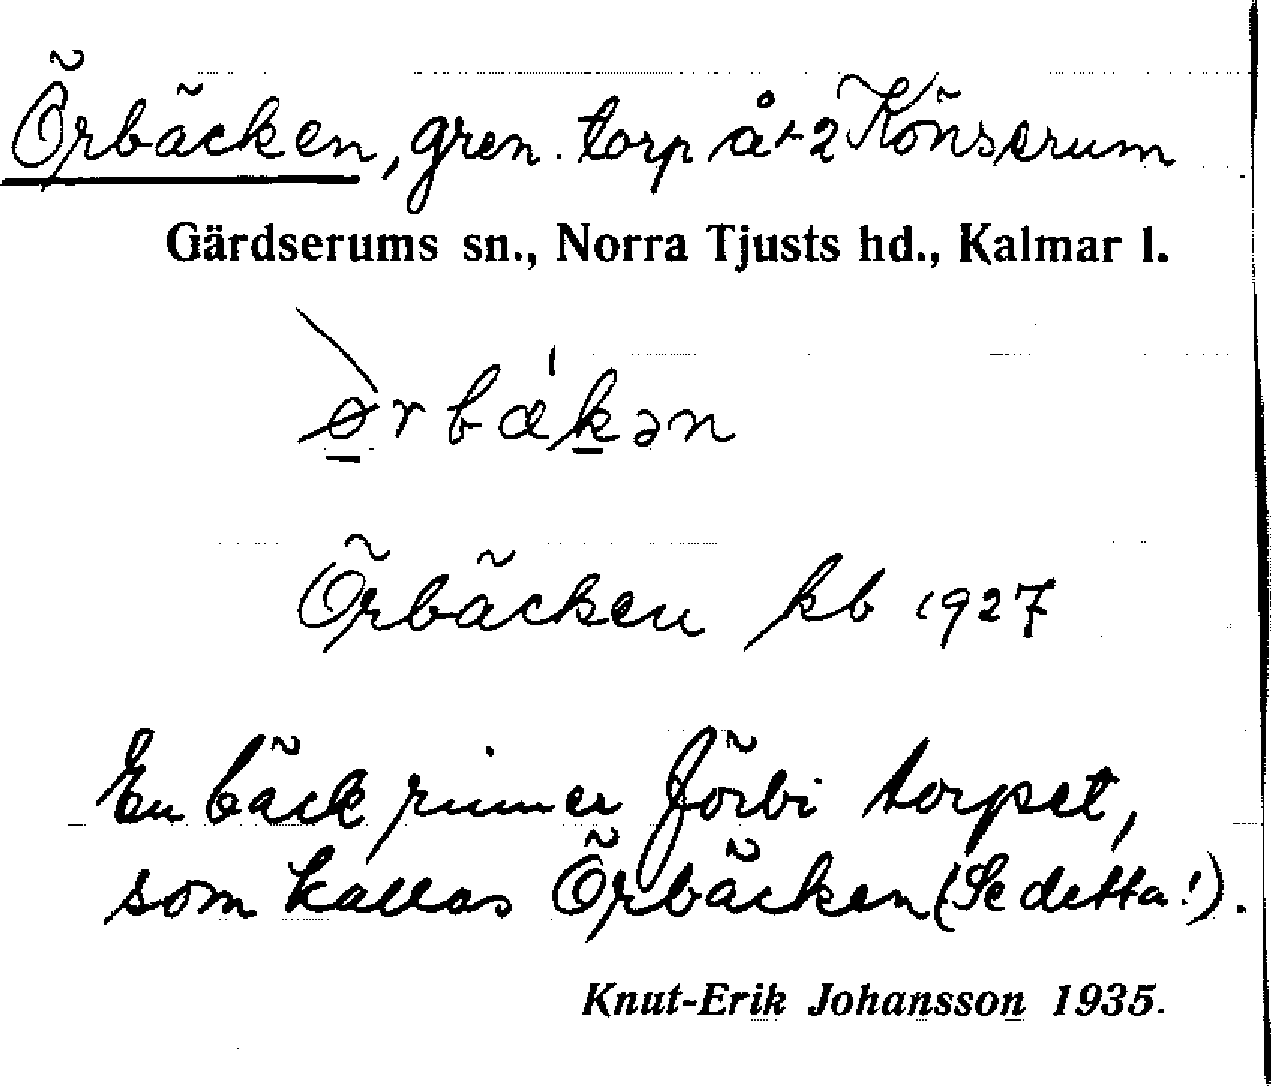 Örbäcken, gren. torp å 2 Könserum
Gärdserums sn., Norra Tjusts hd., Kalmar l.
ørbækən
Örbäcken kb 1927
En bäck rinner förbi torpet,
som kallas Örbäcken (Se detta!).
Knut-Erik Johansson 1935.